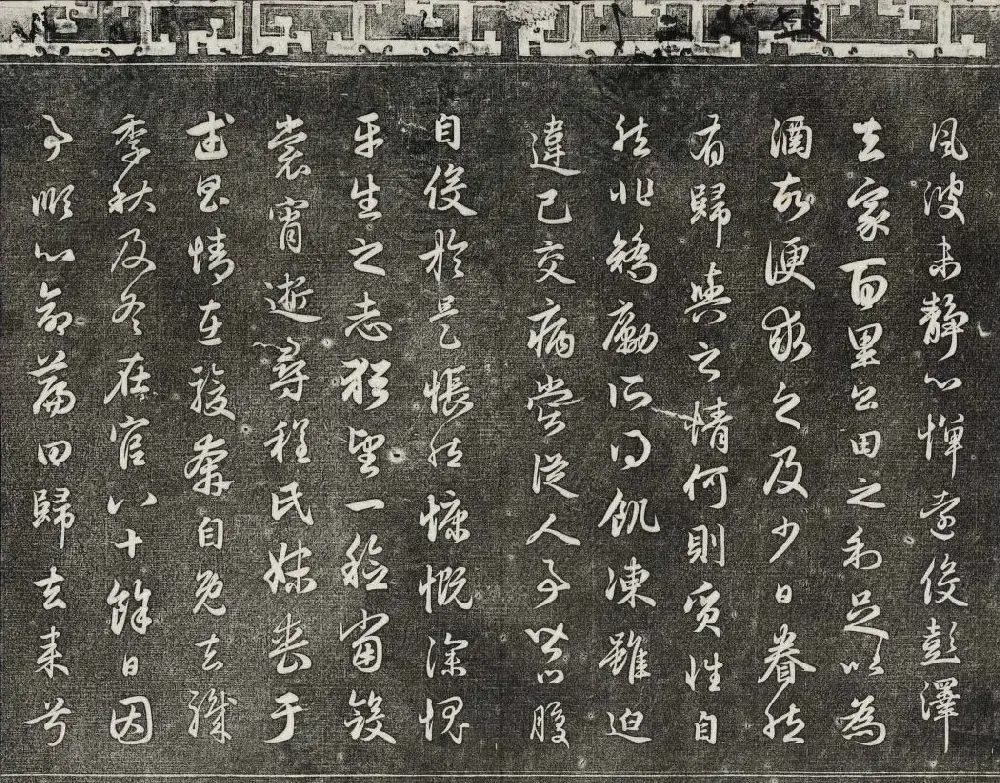 風波未靜心憚遠役彭澤
去家百里公田之利足以為
酒故便求之及少日眷然
有歸與之情何則質性自
然非矯勵所得飢凍雖迫
違己交病嘗從人事皆口腹
自役於是悵然慷慨深愧
平生之志猶望一稔當斂
裳宵逝尋程氏妹喪于
武昌情在駿奔自免去職
季秋及冬在官八十餘日因
事順心命篇曰歸去來兮